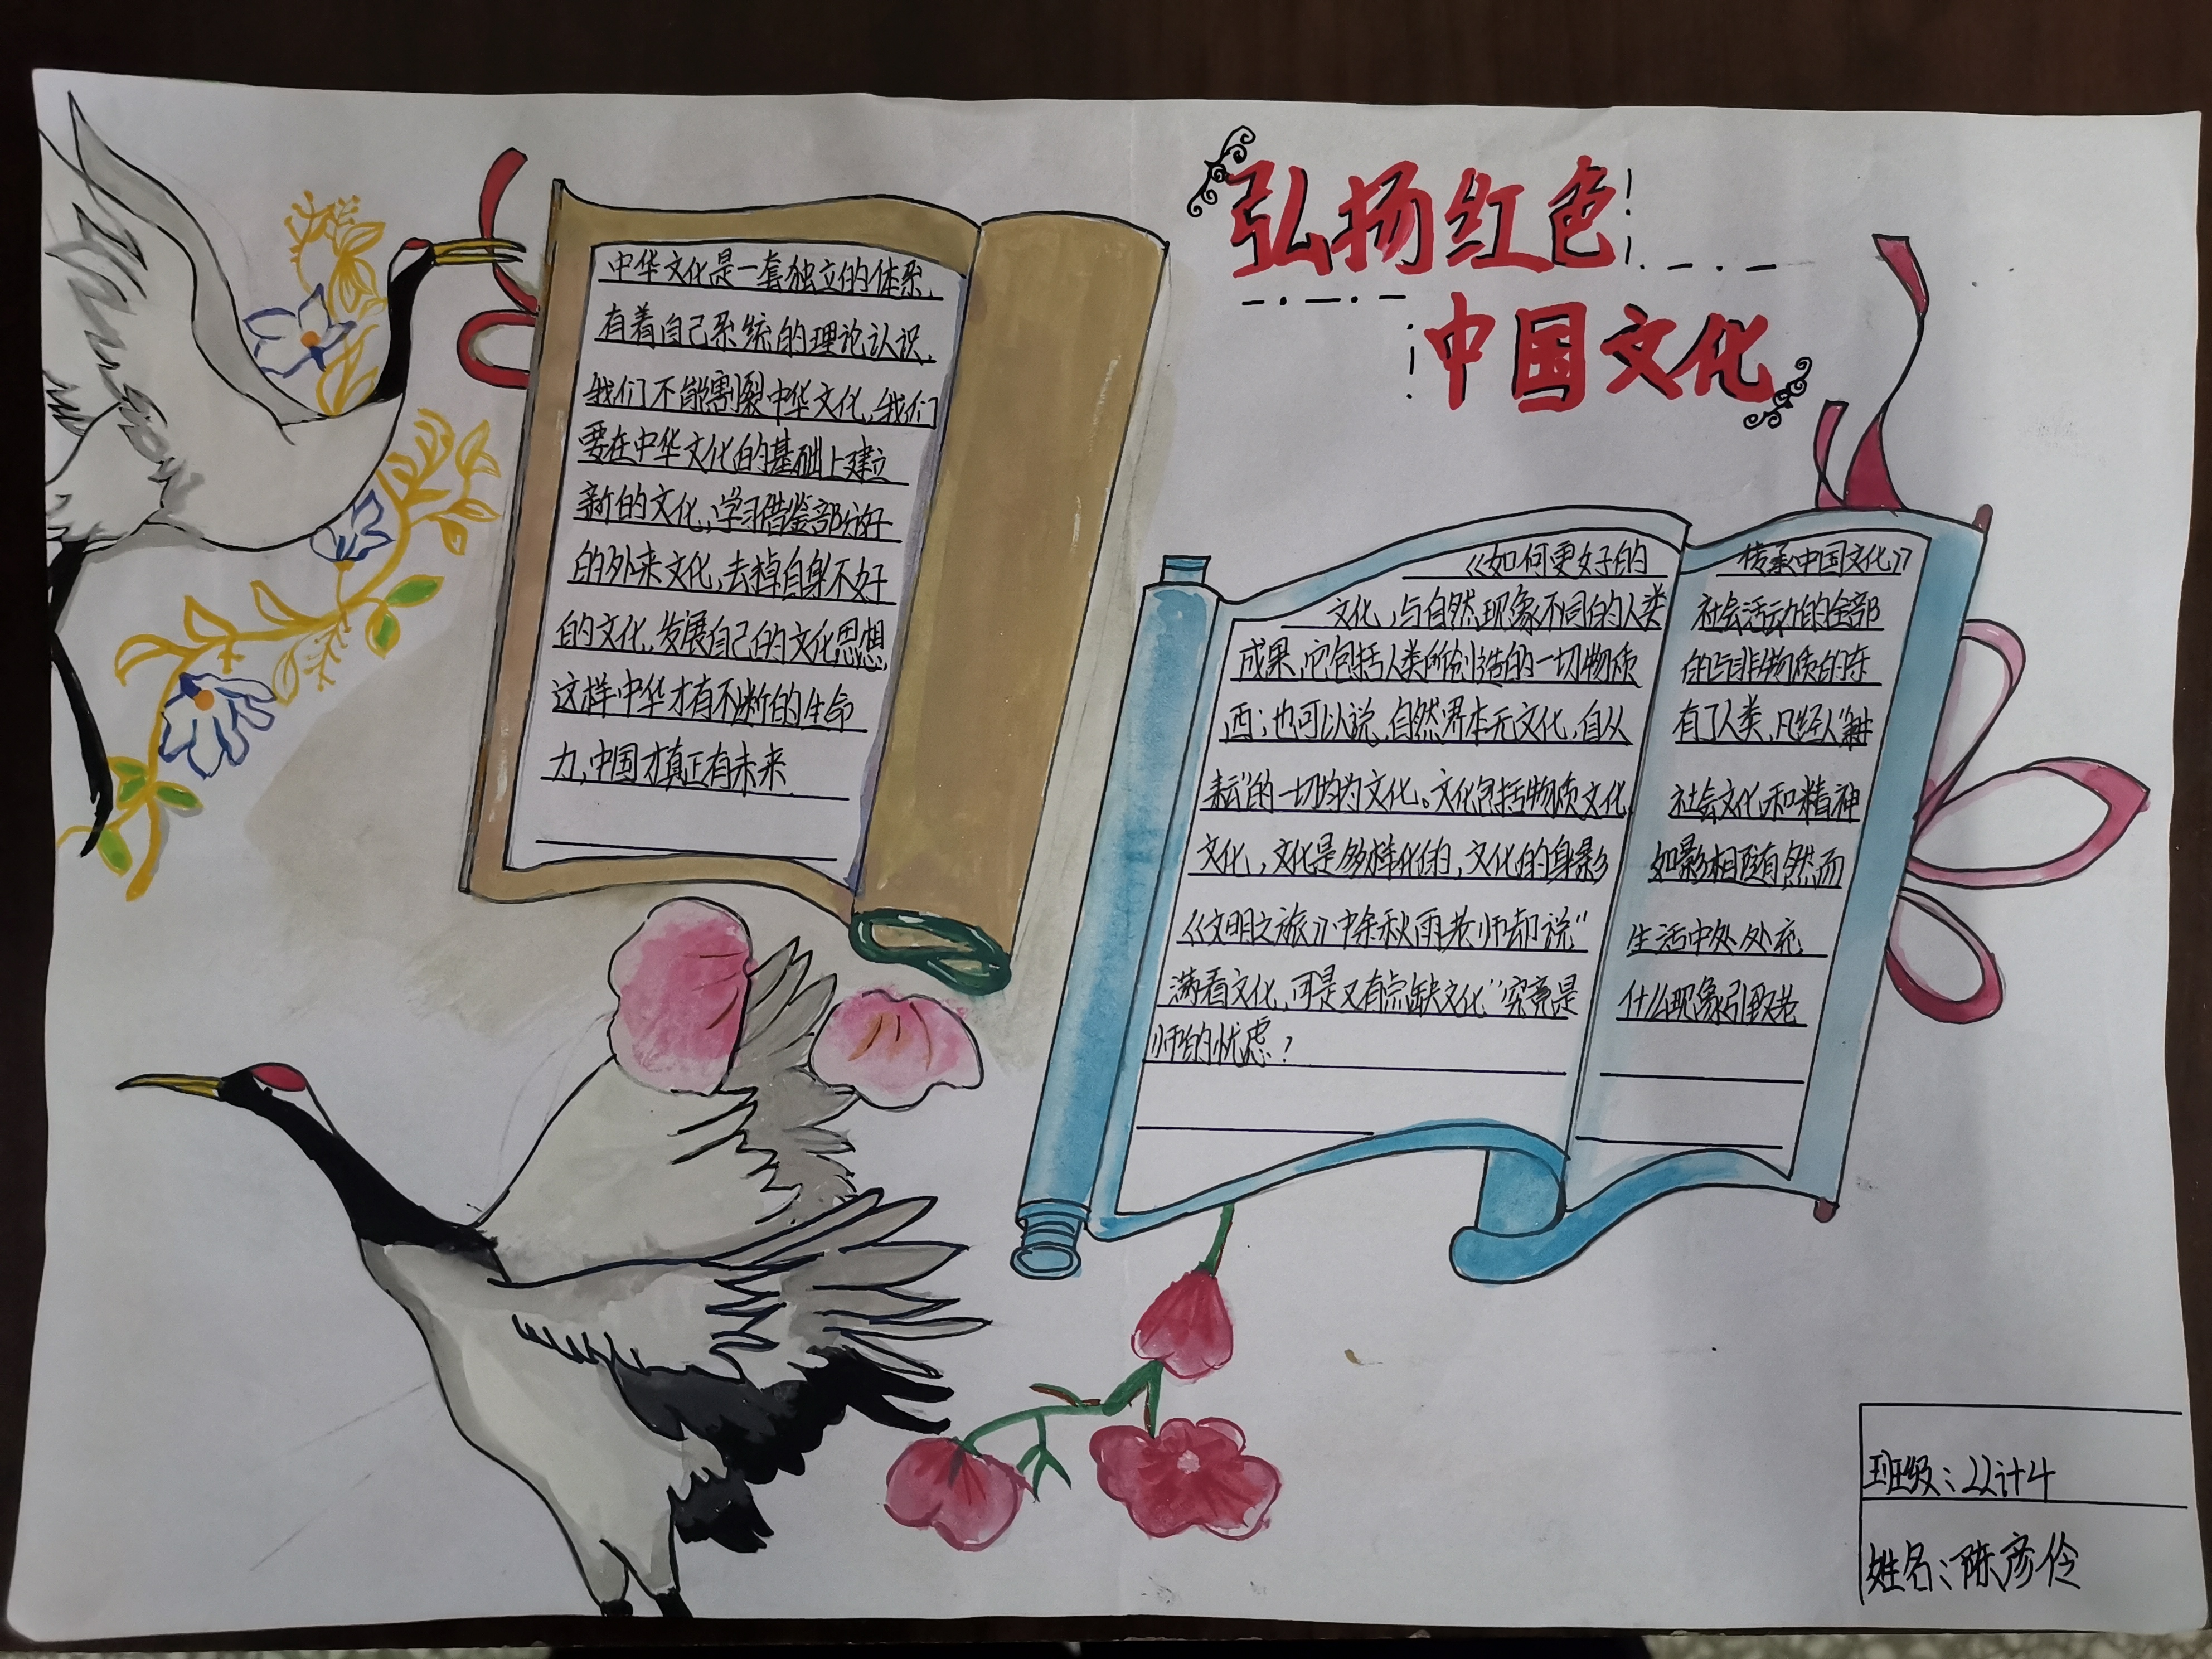 弘扬红色
中国文化
中华文化是一套独立的体系,
有着自己系统的理论认识,
我们不能割裂中华文化,我们
要在中华文化的基础上建立
新的文化,学习借鉴部分好
的外来文化,去掉自身不好
的文化,发展自己的文化思想,
这样中华才有不断的生命
力,中国才真正有未来
《如何更好的 传承中国文化》
文化,与自然现象不同的人类 社会活动的全部
成果,它包括人类所创造的一切物质 的与非物质的东
西;也可以说,自然界本无文化,自从 有了人类,凡经人"耕
耘"的一切均为文化。文化包括物质文化, 社会文化,和精神
文化,文化是多样化的,文化的身影 如影相随有然而
《文明之旅》中余秋雨老师却说" 生活中处处充
满着文化,可是又有点缺文化"究竟是 什么现象引致老
师的忧虑?
班级:22计4
姓名:陈彦伶